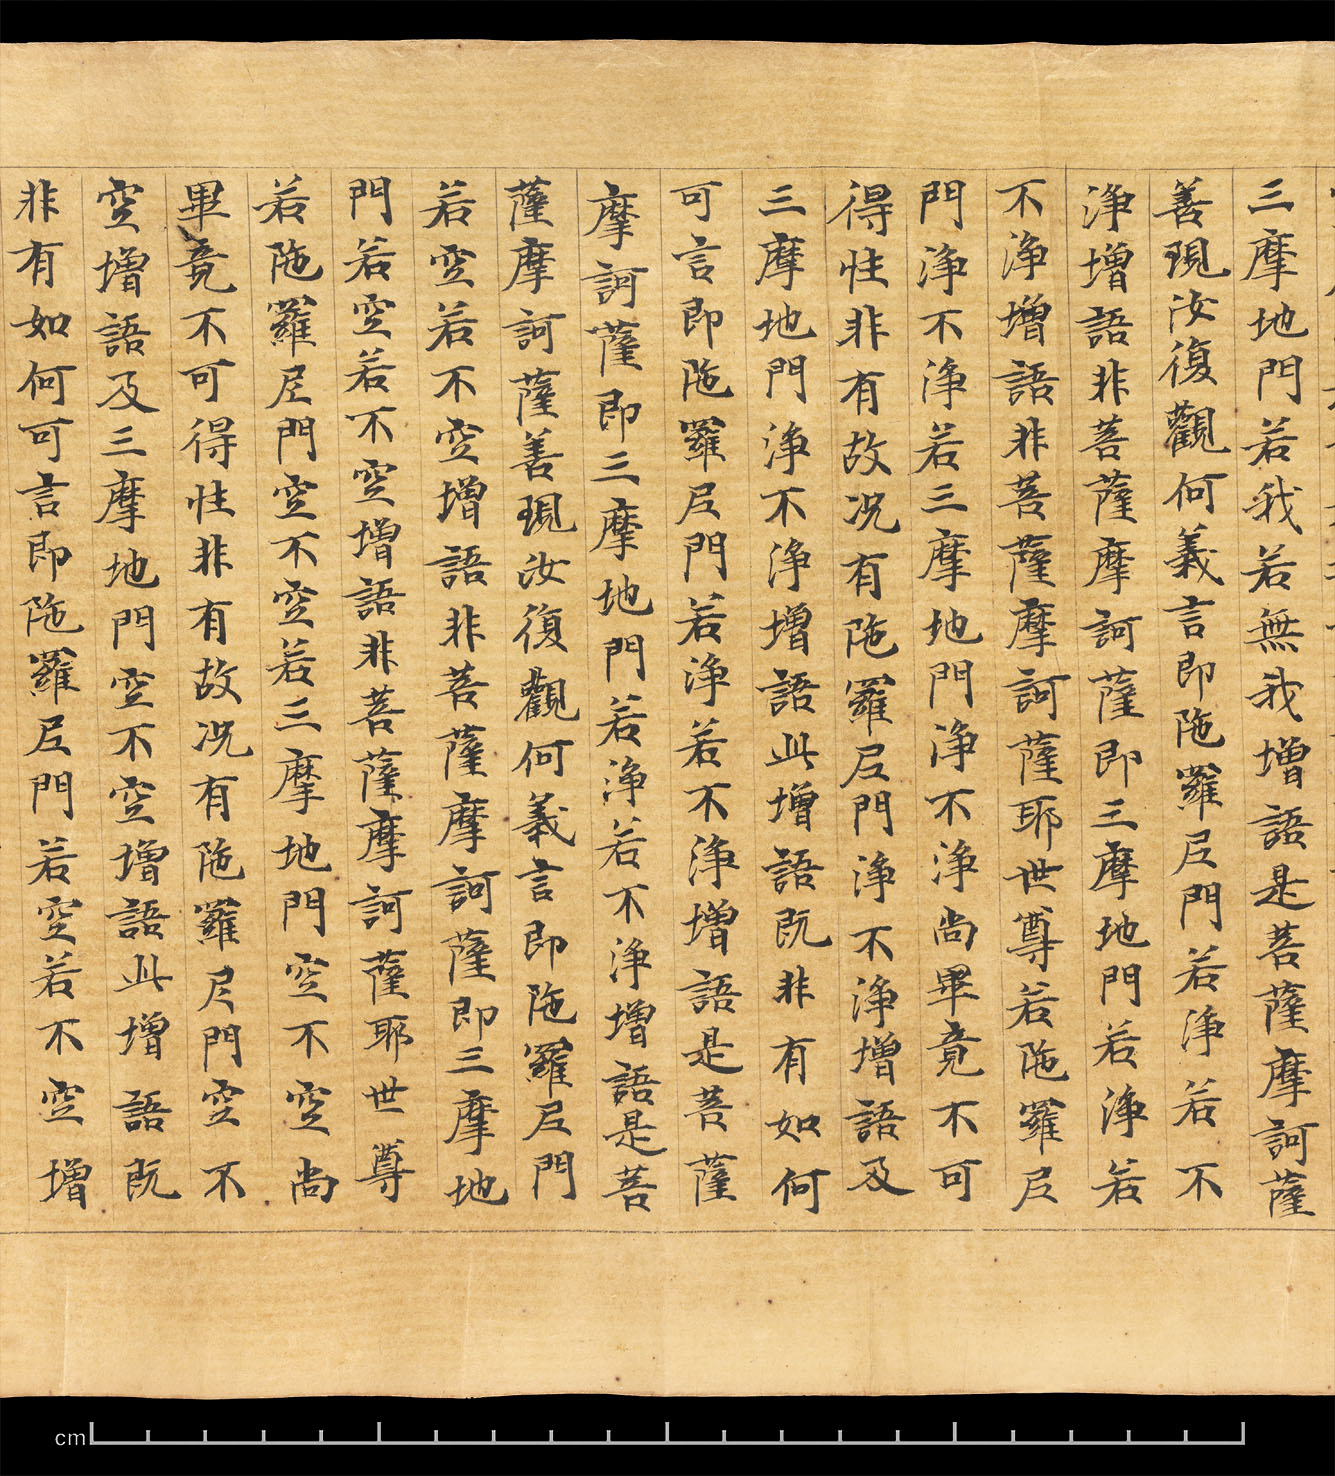 三摩地門若我若無我增語是菩薩摩訶薩
善現汝復觀何義言即陁羅尼門若淨若不
淨增語非菩薩摩訶薩即三摩地門若淨若
不淨增語非菩薩摩訶薩耶世尊若陁羅尼
門淨不淨若三摩地門淨不淨尚畢竟不可
得性非有故况有陁羅尼門淨不淨增語及
三摩地門淨不淨增語此增語既非有如何
可言即陁羅尼門若淨若不淨增語是菩薩
摩訶薩即三摩地門若淨若不淨增語是菩
薩摩訶薩善現汝復觀何義言即陁羅尼門
若空若不空增語非菩薩摩訶薩即三摩地
門若空若不空增語非菩薩摩訶薩耶世尊
若陁羅尼門空不空若三摩地門空不空尚
畢竟不可得性非有故况有陁羅尼門空不
空增語及三摩地門空不空增語此增語既
非有如何可言即陁羅尼門若空若不空增